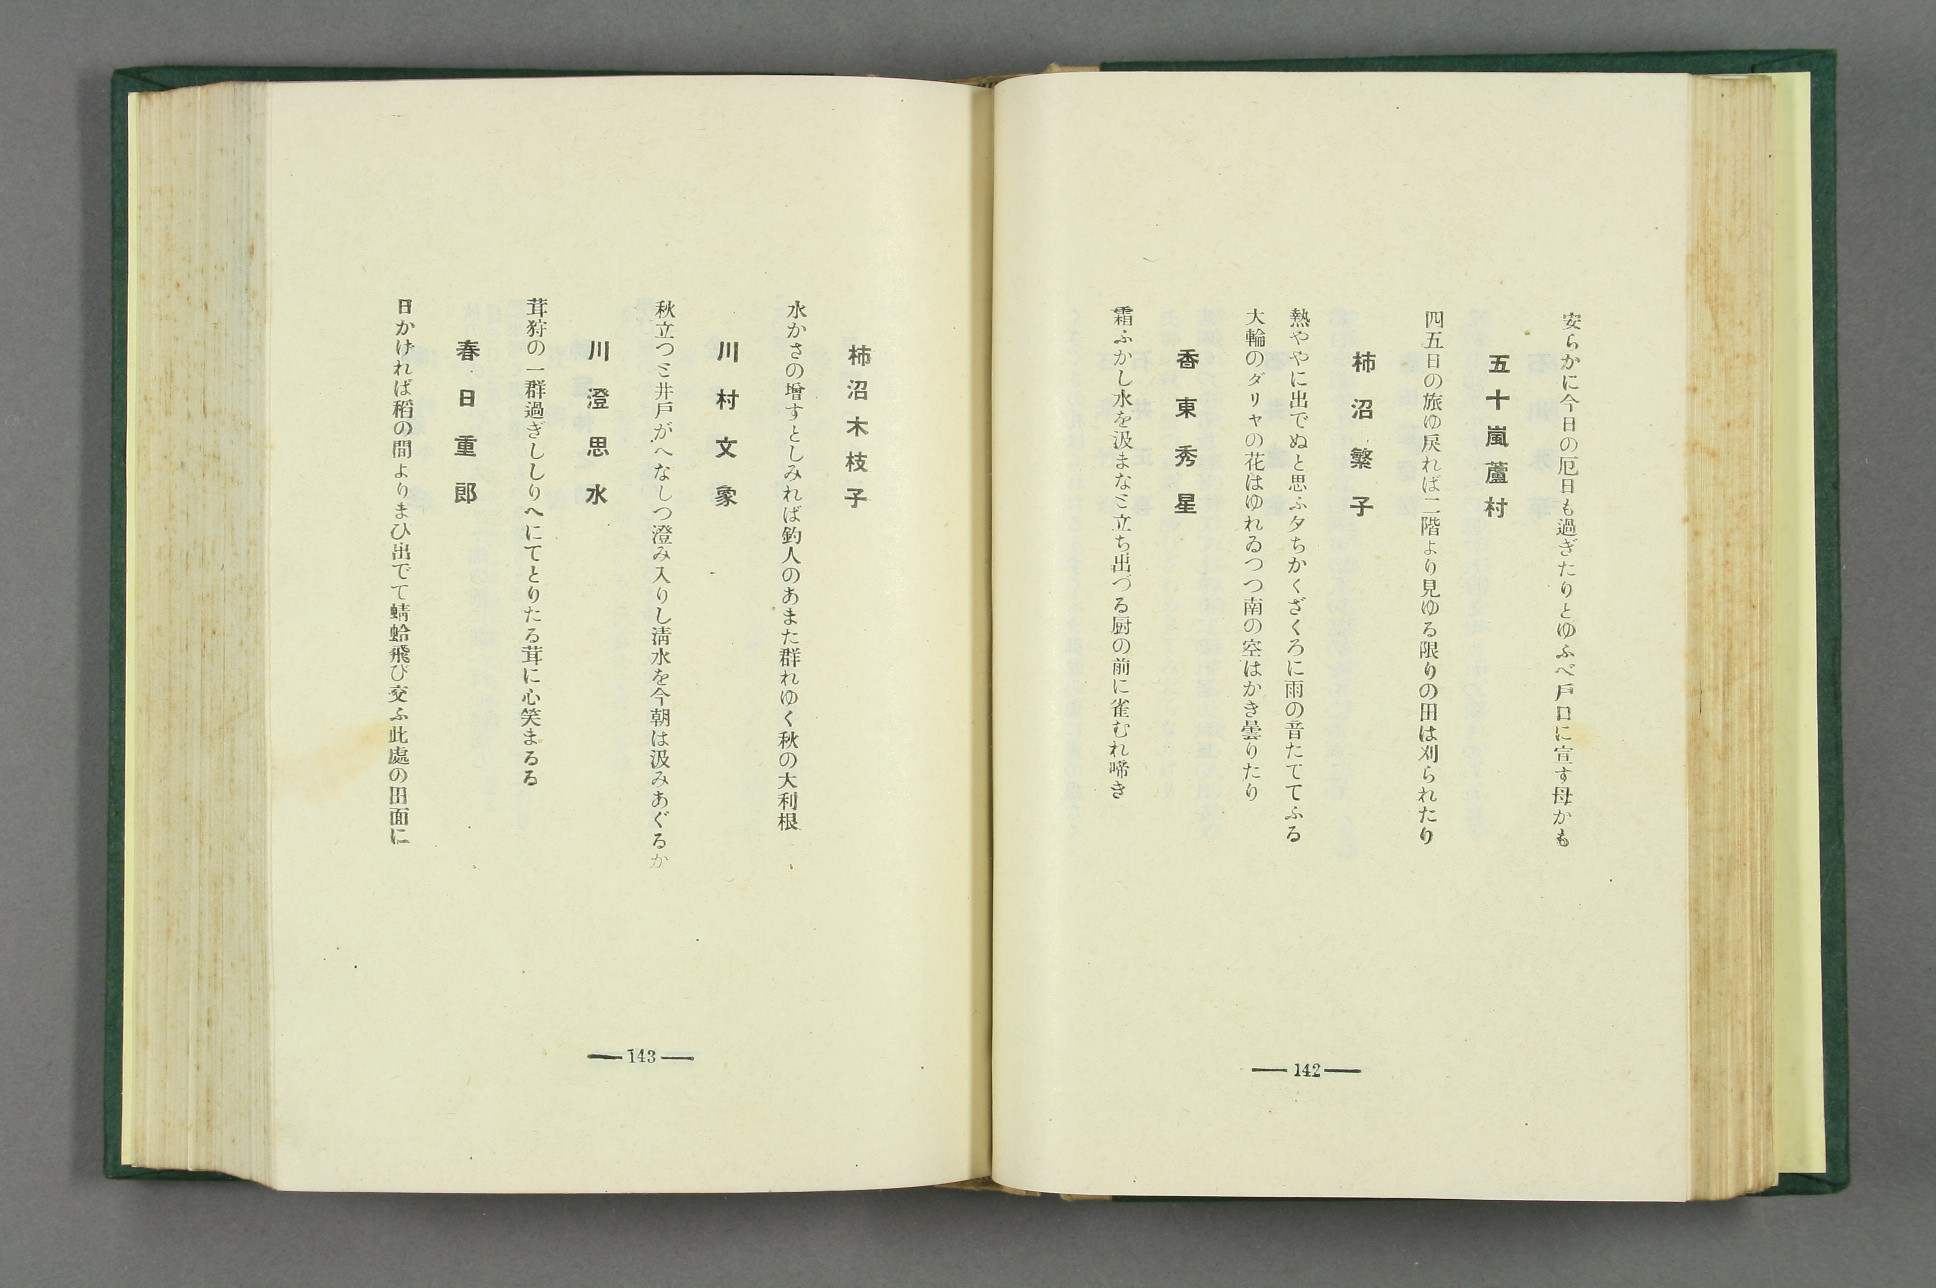 安らかに今日の厄日も過ぎたりとゆふべ戸口に宣す母かも
五十嵐蘆村
四五日の旅ゆ戻れば二階より見ゆる限りの田は刈られたり
柿沼繁子
熱ややに出でぬと思ふ夕ちかくざくろに雨の音たててふる
大輪のダリヤの花はゆれゐつつ南の空はかき曇りたり
香東秀星
霜ふかし水を汲まなと立ち出づる厨の前に雀むれ啼き
— 142 —
柿沼木枝子
水かさの增すとしみれば釣人のあまた群れゆく秋の大利根
川村文象
秋立つと井戸がへなしつ澄み入りし淸水を今朝は汲みあぐるか
川澄思水
茸狩の一群過ぎししりへにてとりたる茸に心笑まるる
春日重郎
日かければ稻の間よりまひ出でて蜻蛉飛び交ふ此處の田面に
— 143 —